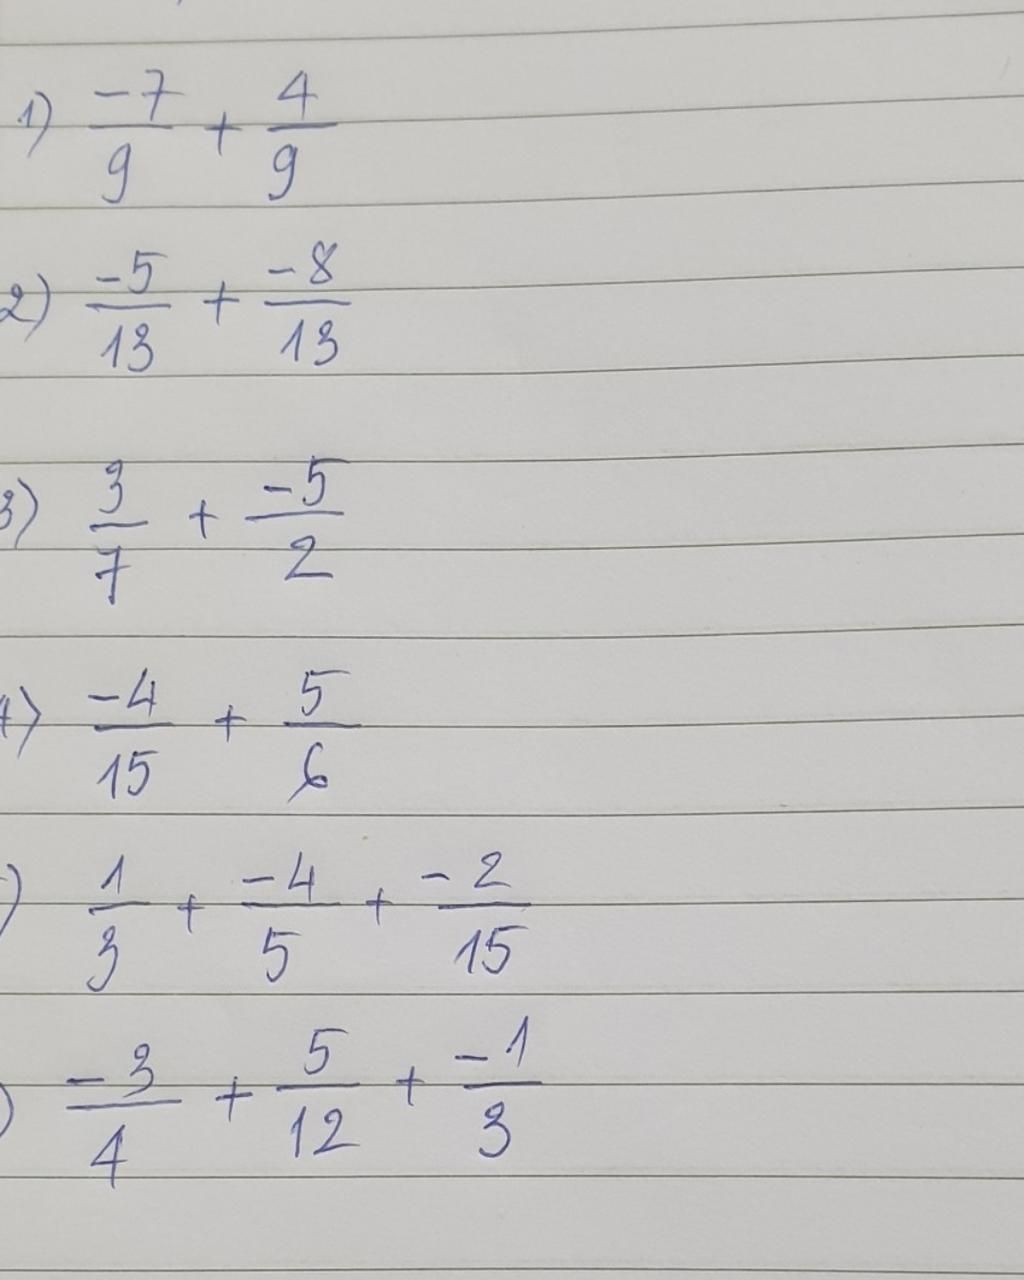 1) -7/9 + 4/9
2) -5/13 + -8/13
3) 3/7 + -5/2
4) -4/15 + 5/6
) 1/3 + -4/5 + -2/15
) -3/4 + 5/12 + -1/3